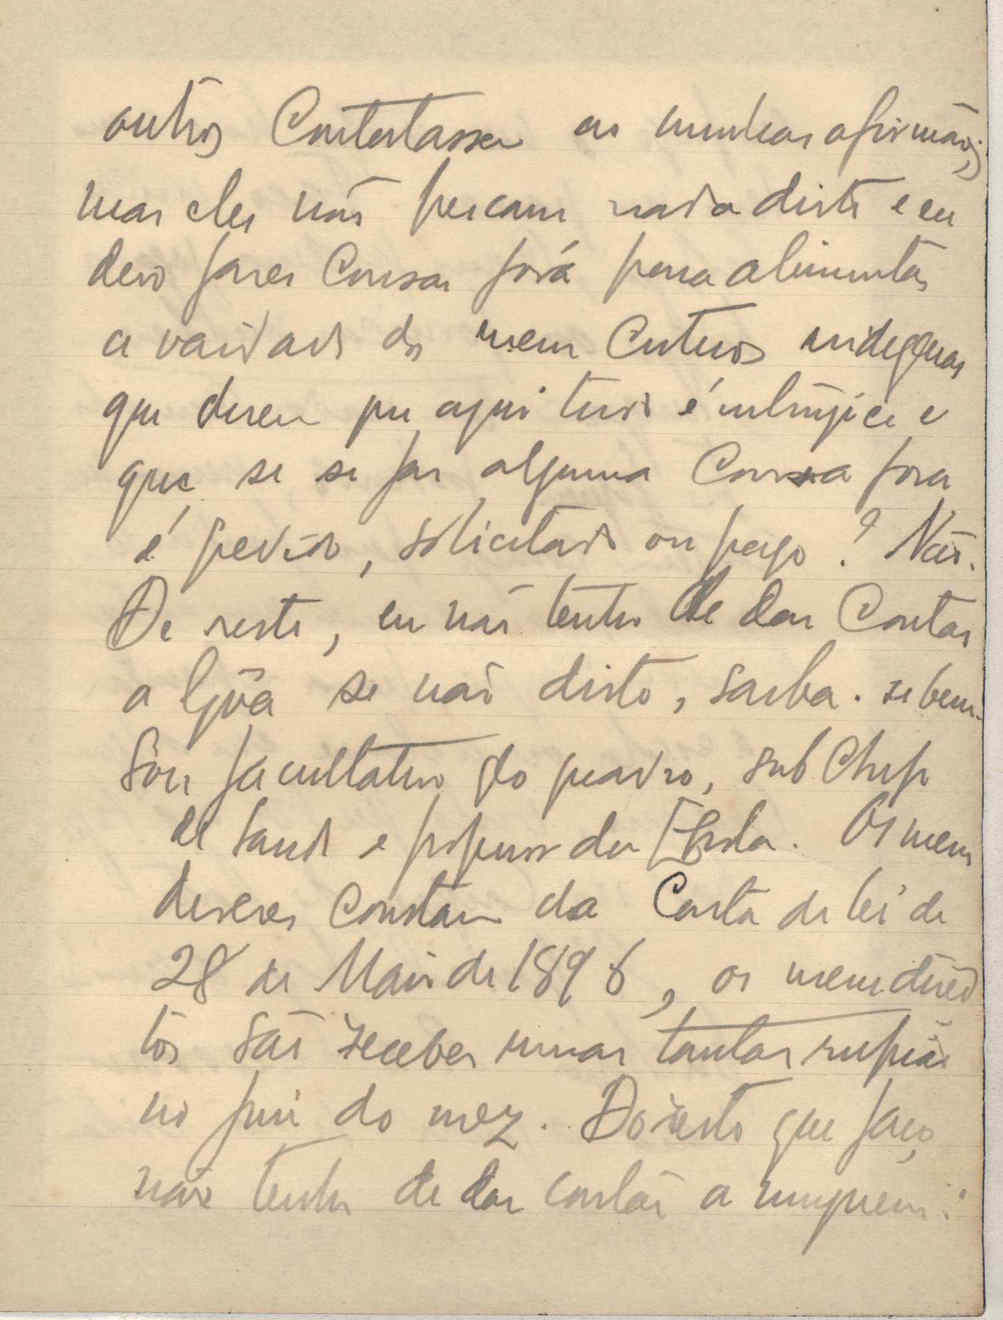 outros contestassem as minhas afirmações,
mas eles não pescam nada disto e eu
devo fazer cousas fora para alimentar
a vaidade dos meus
que dizem que aqui tudo é intrujice e
que se se faz alguma cousa fora
é pedido, solicitado ou pago? Não.
De resto, eu não tenho de dar contas
a Gôa se não disto, saiba-se bem.
Sou facultativo do quadro, sub chefe
de saude e professor da Escola. Os meus
deveres constam da Carta de lei de
28 de Maio de 1896, os meus direi
tos são receber umas tantas rupias
no fim do mez. Do resto que faço,
não tenho de dar contas a ninguem: